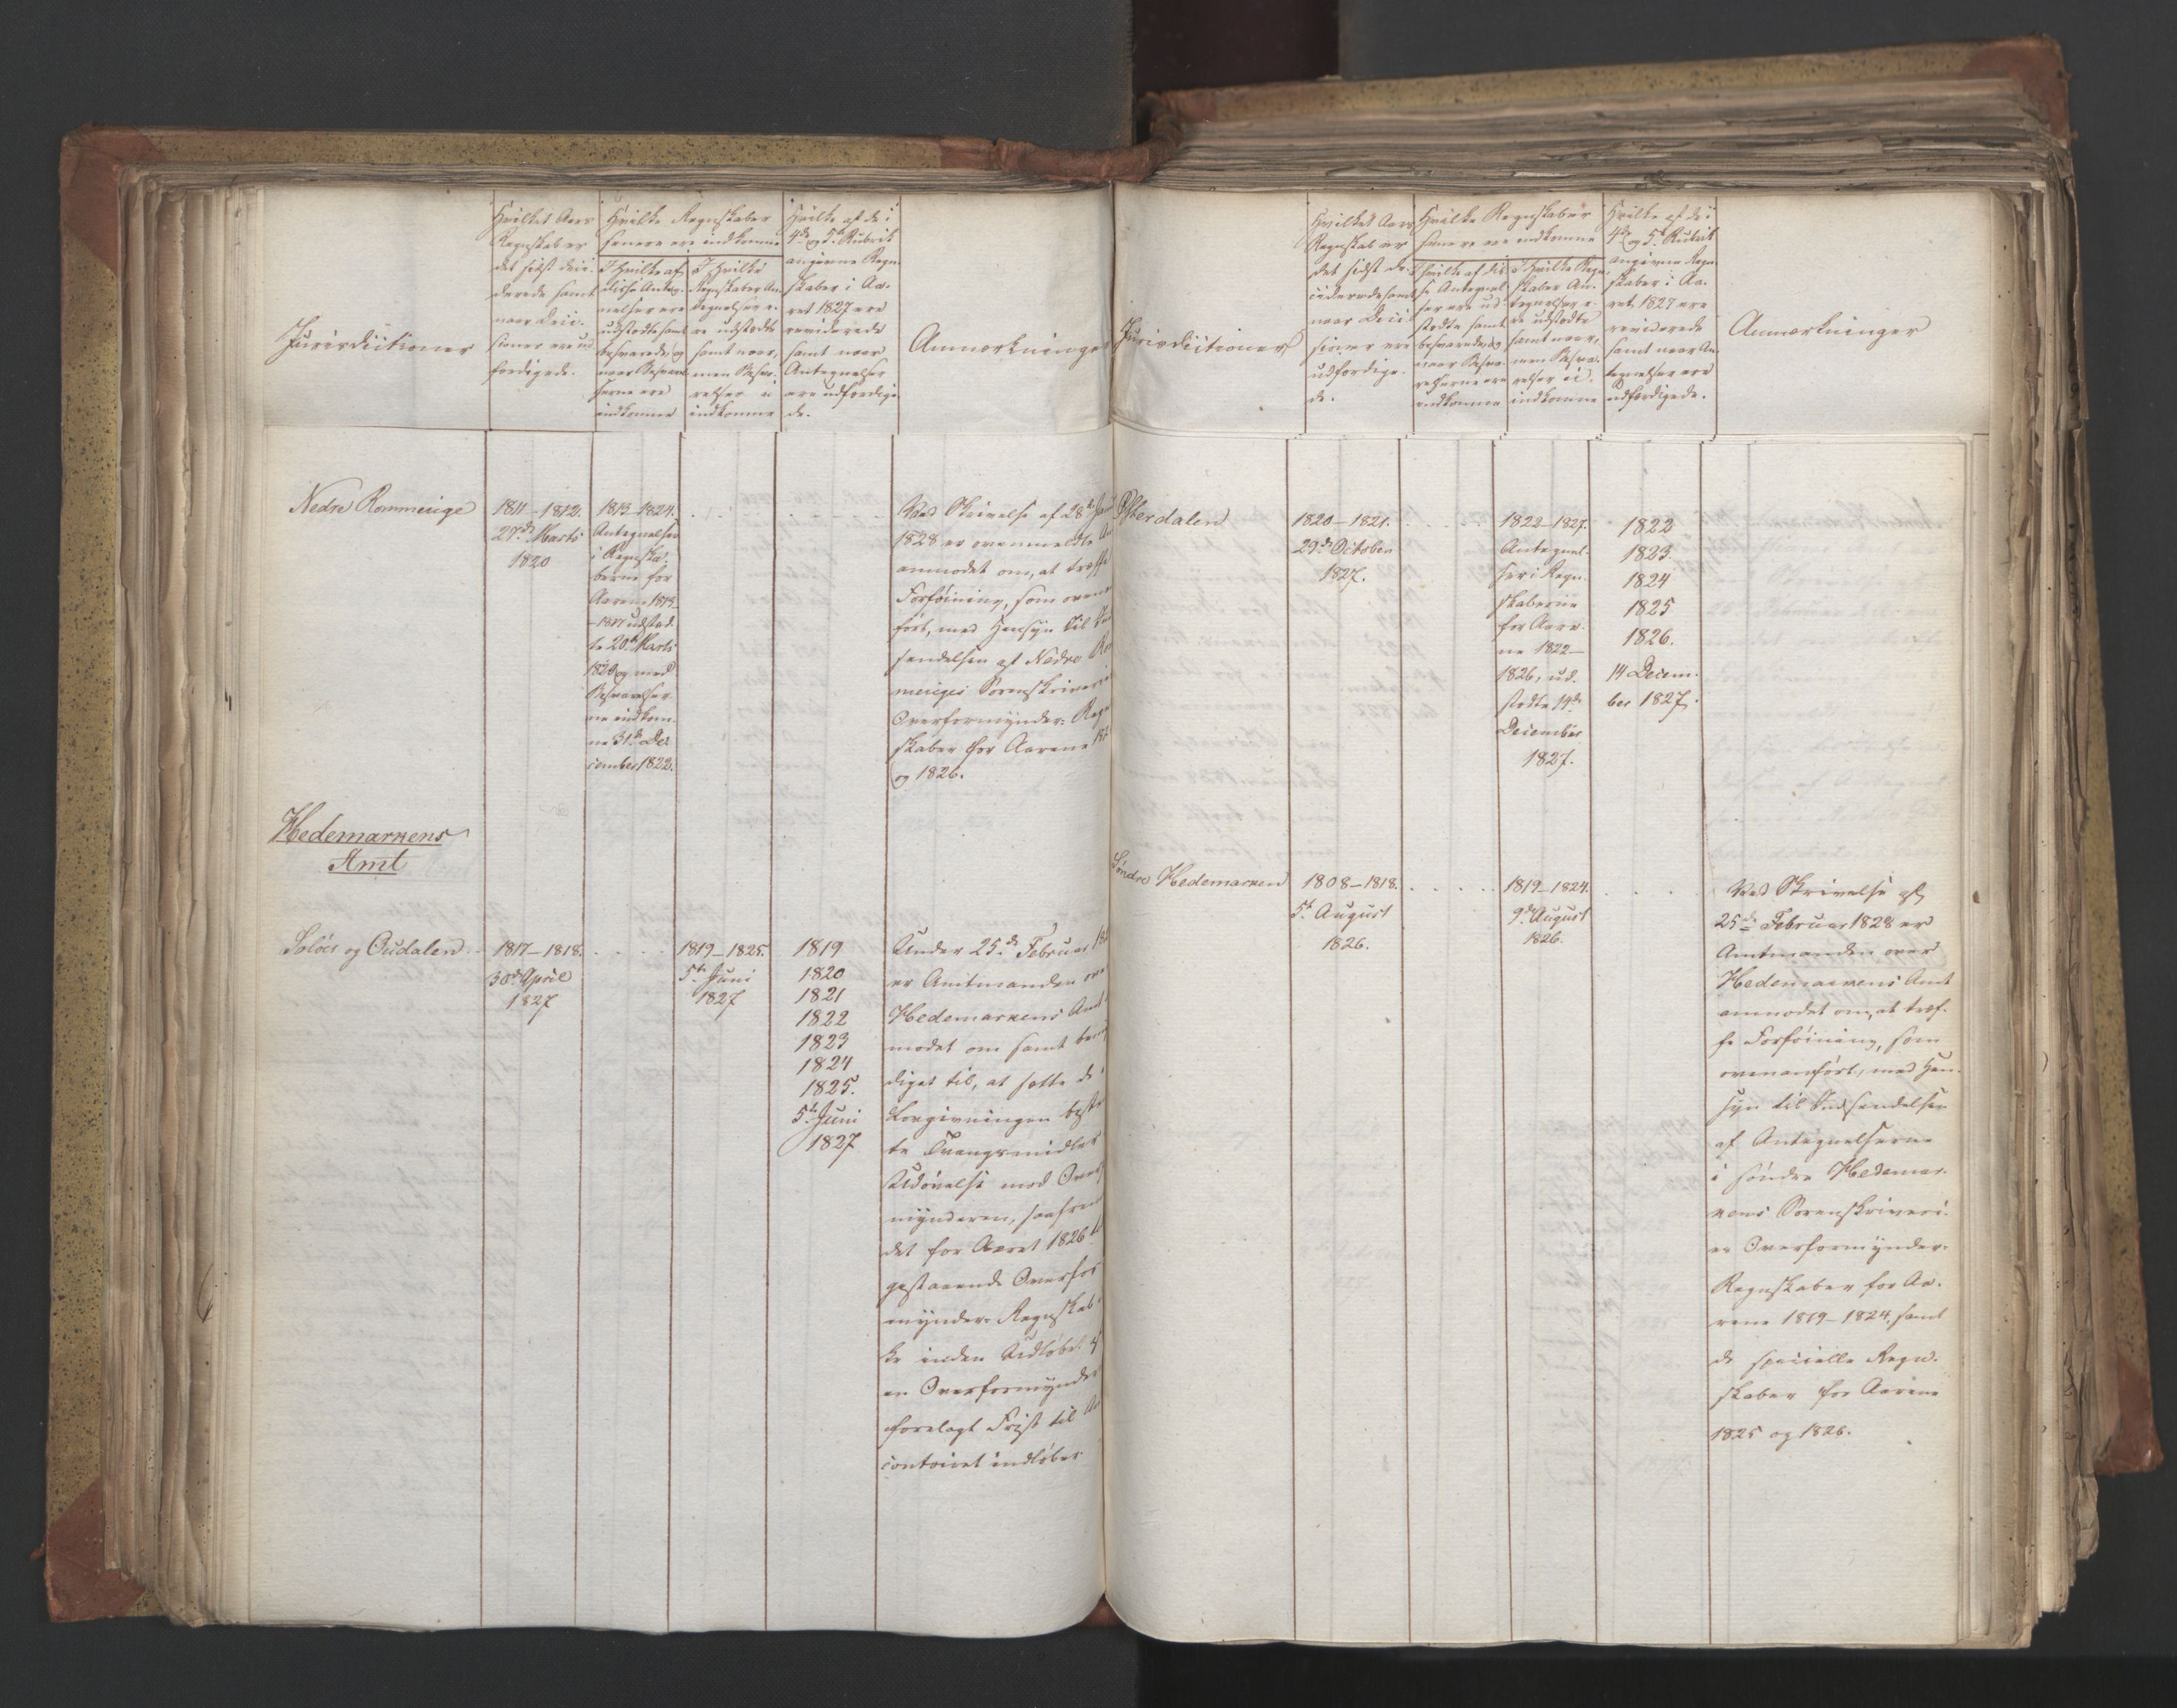 Jurisdictioner
Hvilket Aars
Regnskab er
det sidst deci-
derede samt
naar Deci-
sioner ere ud
færdigede.
Hvilke Regnskaber
senere ere indkomne
I hvilke af
disse Anteg-
nelser ere
udstedte samt
besvarede, og
naar Besvarel-
serne ere
indkomne
I hvilke
Regnskaber An-
tegnelser e-
re udstedte
samt naar,
men Besva-
relser ei
indkomne
Hvilke af de i
4de og 5te Rubrik
angivne Regn-
skaber i Aa-
ret 1827 ere
reviderede
samt naar
Antegnelser
ere udfærdige-
de.
Anmærkninger
Nedre Rommerige
1811–1812.
27de Marts
1820
1813–1824.
Antegnelser
i Regnska-
berne for
Aarene 1813
–1817 udsted-
te 20de Marts
1820 og med
Besvarelser-
ne indkom-
ne 31te De-
cember 1822.
Ved Skrivelse af 28de
1828 er ovenmeldte
anmodet om, at træffe
Forføining, som oven
ført, med Hensyn til
sendelsen af Nedre
meriges Sorenskriverie
Overformynder-
skaber for Aarene
og 1826.
Hedemarkens
Amt
Soløer og Oudalen
1817–1818.
30de April
1827
1819–1825.
5te Juni
1827
1819
1820
1821
1822
1823
1824
1825.
5te Juni
1827
Under 25de Februar
er Amtmanden
Hedemarkens Amt
modet om samt
diget til, at sætte de i
Lovgivningen
te Tvangsmidler
Udøvelse mod
mynderen, saafremt
det for Aaret 1826
gestaaende Overfor
mynder-Regnskab
ke inden Udløbet af
en Overformynder
forelagt Frist til
contoiret indløber
Jurisdictioner
Hvilket Aars
Regnskab er
det sidst de-
ciderede samt
naar Deci-
sioner ere
udfærdige-
de.
Hvilke Regnskaber
senere ere indkomne
I hvilke af dis-
se Antegnel-
ser ere ud-
stedte samt
besvarede, og
naar Besva-
relserne ere
indkomne
I hvilke Regn-
skaber An-
tegnelser e-
re udstedte
samt naar,
men Besva-
relser ei
indkomne
Hvilke af de i
4de og 5te Rubrik
angivne Regn-
skaber i Aa-
ret 1827 ere
reviderede
samt naar An-
tegnelser ere
udfærdigede.
Anmærkninger
Østerdalen
1820–1821.
29de October
1827.
1822–1827.
Antegnel-
ser i Regn-
skaberne
for Aare-
ne 1822–
1826, ud-
stedte 14de
December
1827.
1822
1823.
1824
1825
1826.
14 Decem-
ber 1827.
Søndre Hedemarken
1808–1818.
5te August
1826.
1819–1824.
9de August
1826.
Ved Skrivelse af
25de Februar 1828 er
Amtmanden over
Hedemarkens Amt
anmodet om, at træf-
fe Forføining, som
ovenanført, med Hen-
syn til Indsendelsen
af Antegnelserne
i søndre Hedemar-
kens Sorenskriveri-
es Overformynder-
Regnskaber for Aa-
rene 1819–1824, samt
de specielle Regn-
skaber for Aarene
1825 og 1826.